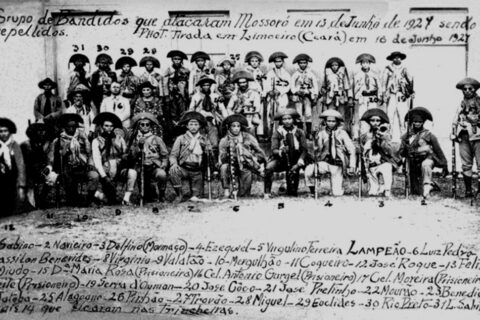 Grupo de Bandidos que atacaram Mossoró em 13 de Junho de 1927 sendo
repellidos. Phot. Tirada em Limoeiro (Ceará) em 16 de Junho 1927
31 30 29 28
12 11 10 9 8 7 6 5 4 3 2 1
Sabino - 2 Navieiro - 3 Delfino (Mormaço) - 4 Ezequiel - 5 Virgulino Ferreira LAMPEÃO - 6 Luiz Pedro
Massilon Benevides - 8 Virginio - 9 Valatão - 10 Mergulhão - 11 Coqueiro - 12 José Roque - 13 Feliz
Miudo - 15 Da. Maria Rosa (Prisioneira) 16 Cel. Antonio Gurgel (Prisioneiro) 17 Cel. Moreira (Prisioneiro)
(Prisioneiro) - 19 Serra d'Ouman - 20 José Côco - 21 José Pretinho - 22 Mourão - 23 Benedicto
25 Alagoano - 26 Pinhão - 27 Travão - 28 Miguel - 29 Euclides - 30 Rio Preto - 31 L. Sabino
14 que ficaram nas Trincheiras.